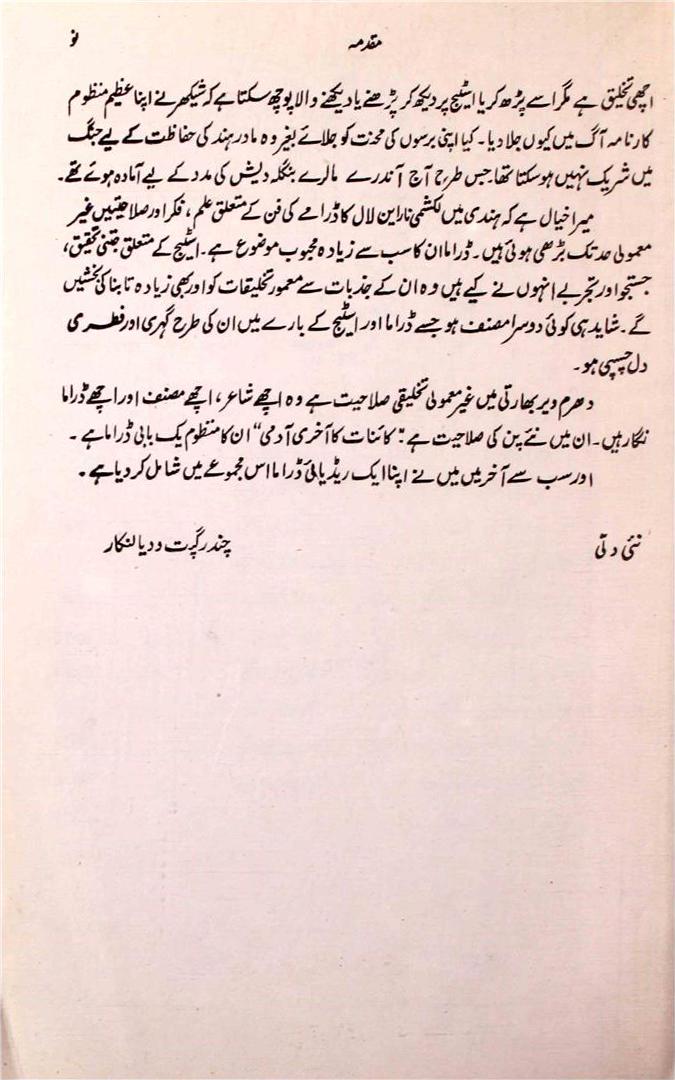 مقدمہ نو
اچھی تخلیق ہے مگر اسے پڑھ کر یا اسٹیج پر دیکھ کر پڑھنے یا دیکھنے والا پوچھ سکتا ہے کہ شیکھر نے اپنا عظیم منظوم
کارنامہ آگ میں کیوں جلا دیا۔ کیا اپنی برسوں کی محنت کو جلائے بغیر وہ مادر ہند کی حفاظت کے لیے جنگ
میں شریک نہیں ہو سکتا تھا۔ جس طرح آج آندرے مالرے بنگلہ دیش کی مدد کے لیے آمادہ ہوئے تھے۔
میرا خیال ہے کہ ہندی میں لکشمی ناراین لال کا ڈرامے کی فن کے متعلق علم، فکر اور صلاحیتیں غیر
معمولی حد تک بڑھی ہوئی ہیں۔ ڈراما ان کا سب سے زیادہ محبوب موضوع ہے۔ اسٹیج کے متعلق جتنی تحقیق،
جستجو اور تجربے انہوں نے کیے ہیں وہ ان کے جذبات سے معمور تخلیقات کو اور بھی زیادہ تابناکی بخشیں
گے۔ شاید ہی کوئی دوسرا مصنف ہو جسے ڈراما اور اسٹیج کے بارے میں ان کی طرح گہری اور فطری
دل چسپی ہو۔
دھرم ویر بھارتی میں غیر معمولی تخلیقی صلاحیت ہے وہ اچھے شاعر، اچھے مصنف اور اچھے ڈراما
نگار ہیں۔ ان میں نئے پن کی صلاحیت ہے "کائنات کا آخری آدمی" ان کا منظوم یک بابی ڈراما ہے۔
اور سب سے آخر میں میں نے اپنا ایک ریڈیائی ڈراما اس مجموعے میں شامل کر دیا ہے۔
نئی دلّی چندر گپت ودیالنکار